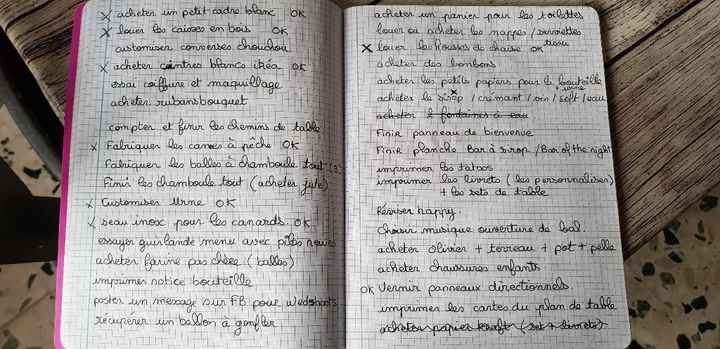 X acheter un petit cadre blanc OK
X louer les caisses en bois OK
customiser converses chouchou
X acheter cintres blancs ikéa OK
essai coiffure et maquillage
acheter rubans bouquet
compter et finir les chemins de table
X Fabriquer les cannes à pêche OK
Fabriquer les balles à chamboule tout
Finir les chamboule tout (acheter jute)
X Customiser Urne OK
X seau inox pour les canards OK
essayer guirlande menu avec piles neuves
acheter farine pas chère (balles)
imprimer notice bouteille
poster un message sur FB pour wedshoots
récupérer un ballon à gonfler
acheter un panier pour les toilettes
louer ou acheter les nappes / serviettes
tissu
X louer les housses de chaise OK
acheter des bonbons
acheter les petits papiers pour la bouteille
+ urne
X
acheter le sirop / crémant / vin / soft / eau
acheter 2 fontaines à eau
Finir panneau de bienvenue
Finir planche Bar à sirop / Bar of the night
imprimer les tatoos
imprimer les livrets (les personnaliser)
+ les sets de table
Réviser happy.
Choisir musique ouverture de bal.
acheter olivier + terreau + pot + pelle
acheter chaussures enfants
OK Vernir panneaux directionnels
imprimer les cartes du plan de table
acheter papier kraft (set + livrets)